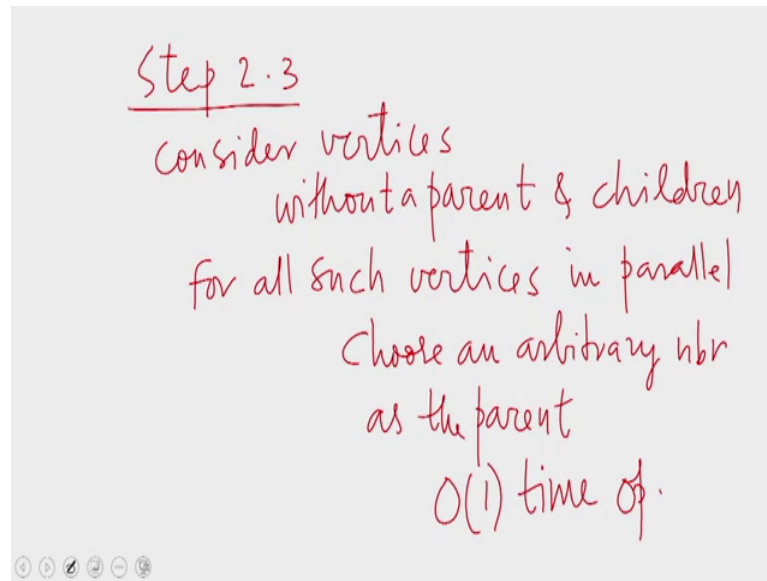 Step 2.3
consider vertices
without a parent & children
for all such vertices in parallel
Choose an arbitrary nbr
as the parent
O(1) time op.